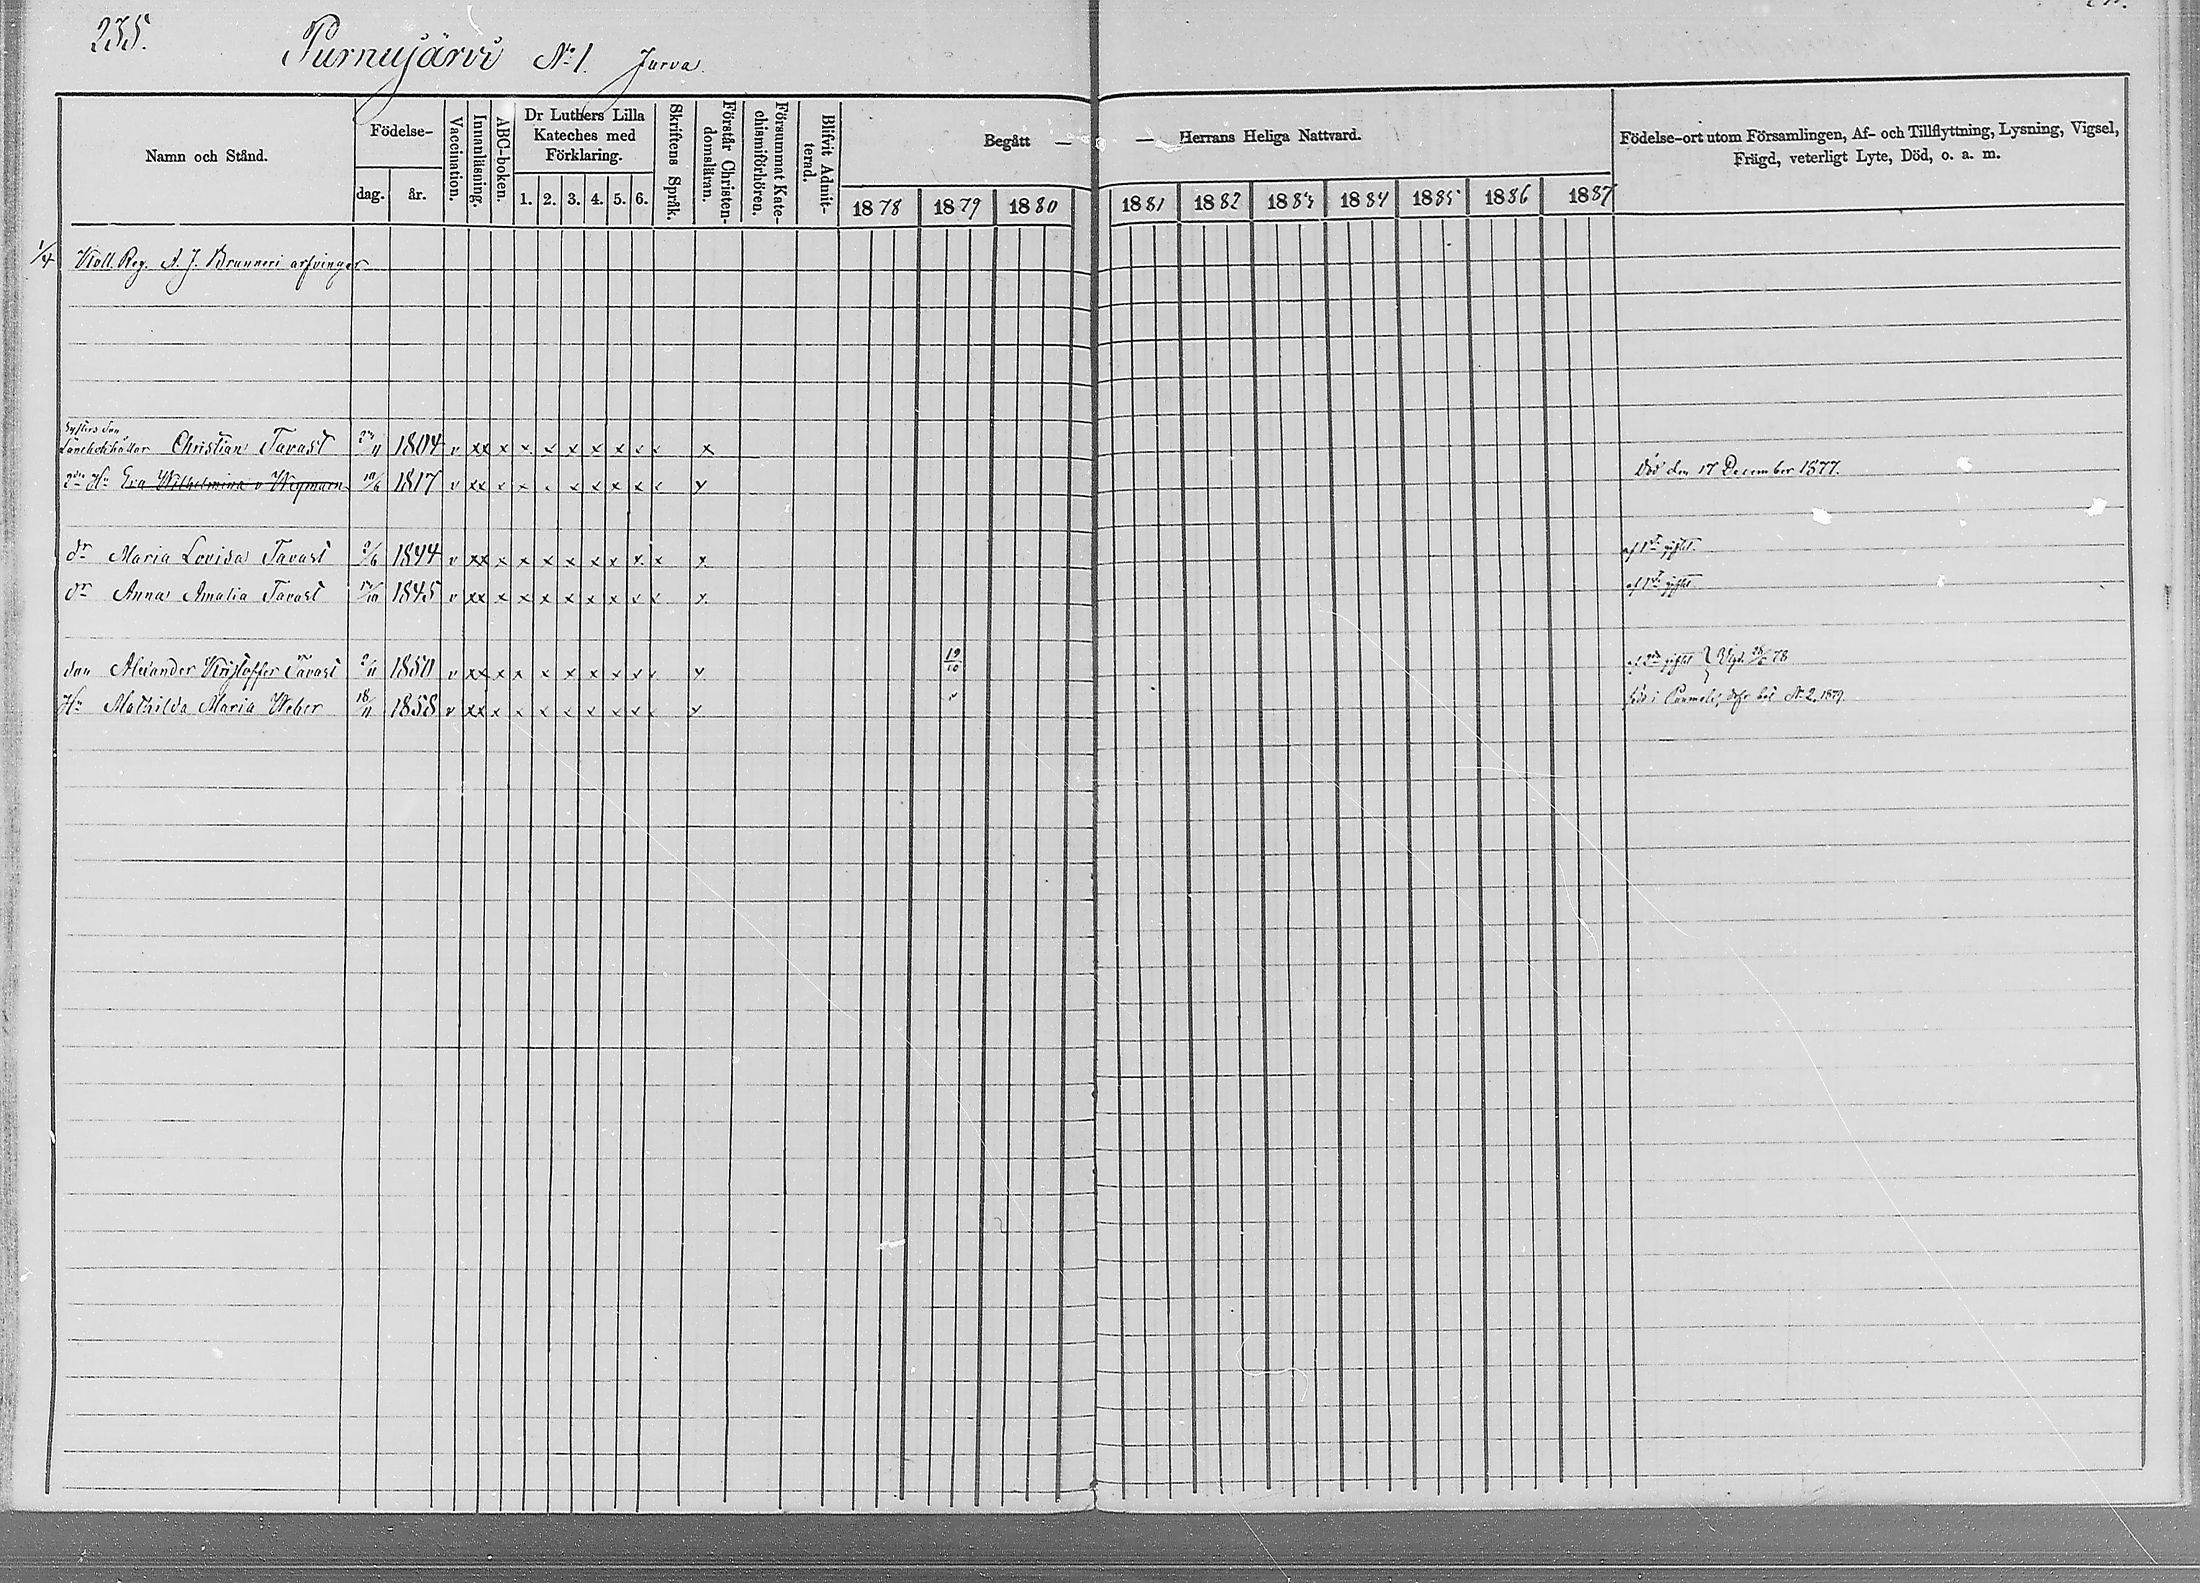 235.
Purnujärvi No 1. Jurva.
Namn och Stånd.
Födelse-
dag. år.
Vaccination.
Innanläsning.
ABC-boken.
Dr Luthers Lilla Kateches med Förklaring.
1. 2. 3. 4. 5. 6.
Skriftens Språk.
Förstår Christen-domsläran.
Försummat Kate-chismiförhören.
Blifvit Admit-terad.
Begått — — Herrans Heliga Nattvard.
1878 1879 1880 1881 1882 1883 1884 1885 1886 1887
Födelse-ort utom Församlingen, Af- och Tillflyttning, Lysning, Vigsel,
Frägd, veterligt Lyte, Död, o. a. m.
1/4 Koll. Reg. A. J. Brunneri arfvingar
Christian Tavast 1804 v xx x x x x x x x x x
2dra Hu Eva Wilhelmina v Wegmarn 10/6 1817 v xx x x x x x x x x x Död den 17 December 1877.
dr Maria Lovisa Tavast 1844 v xx x x x x x x x x x af 1sta giftet.
dr Anna Amalia Tavast 1845 v xx x x x x x x x x x af 1sta giftet.
son Alexander Kristoffer Tavast 1850 v xx x x x x x x x x x 19/10 af 2dra giftet Vigd. 78
Hu Mathilda Maria Weber 18/11 1858 v xx x x x x x x x x x v född i No 2. 1879.